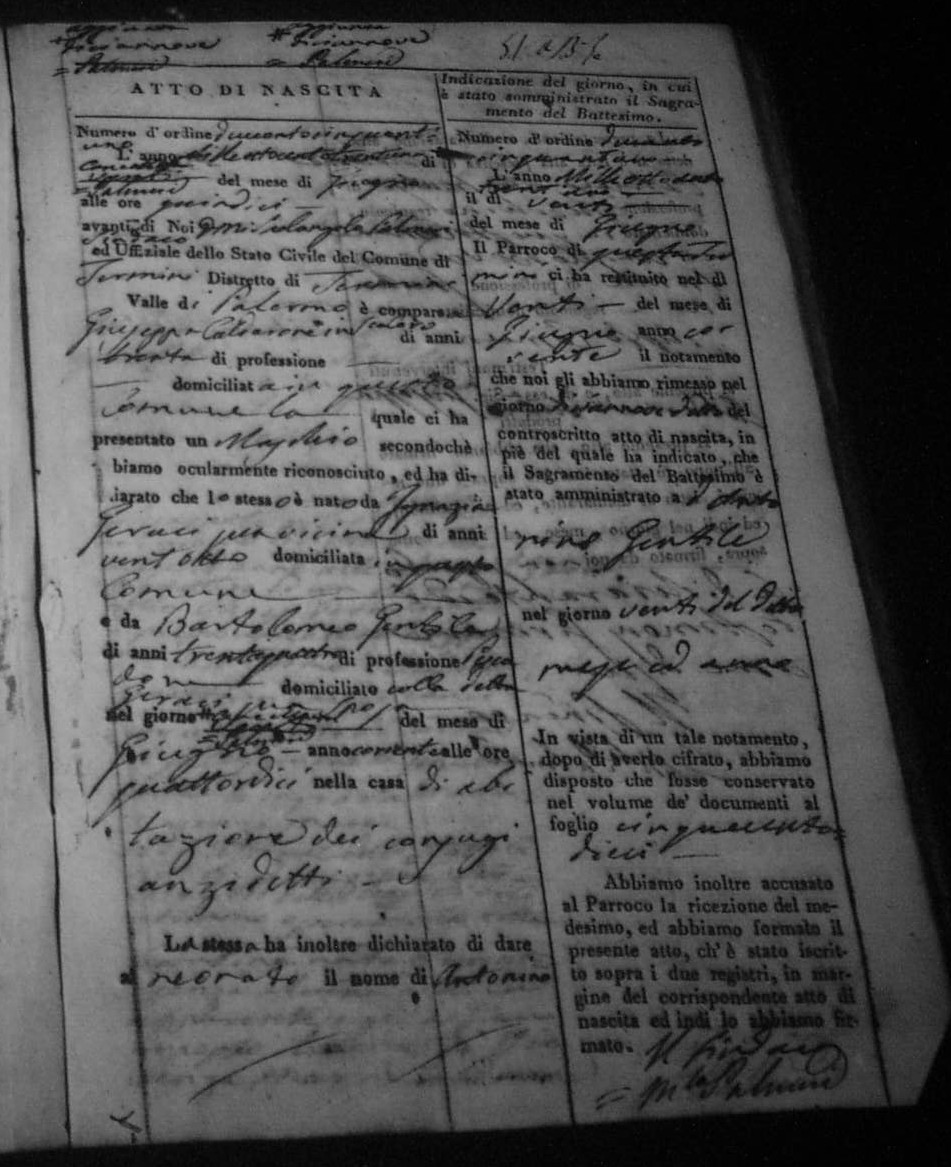 aggiunta
diciannove
= Palmeri
aggiunta
diciannove
= Palmeri
ATTO DI NASCITA
Numero d' ordine duecentocinquant
uno
L' anno milleottocento di
del mese di Giugno
alle ore quindici
avanti di Noi Palmeri
Sindaco
ed Uffiziale dello Stato Civile del Comune di
Termini Distretto di Termini
Valle di Palermo è comparsa
Giuseppa Calcarone in
di anni
trenta di professione
domiciliata in questo
Comune la quale ci ha
presentato un Maschio secondochè
biamo ocularmente riconosciuto, ed ha di-
iarato che lo stesso è nato da Ignazia
Geraci sua vicina di anni
ventotto domiciliata in questo
Comune
e da Bartolomeo Gentile
di anni trentaquattro di professione
domiciliato colla detta
Geraci
nel giorno del mese di
Giugno anno corrente alle ore
quattordici nella casa di abi
tazione dei conjugi
anzidetti
La stessa ha inoltre dichiarato di dare
al neonato il nome di Antonino
Indicazione del giorno, in cui
è stato somministrato il Sagra-
mento del Battesimo.
Numero d' ordine duecento
cinquantuno
L' anno Mille ottocento
trent
il dì venti
del mese di Giugno
Il Parroco di questa Ter
mini ci ha restituito nel dì
Venti del mese di
Giugno anno cor
rente il notamento
che noi gli abbiamo rimesso nel
giorno diciannove detto del
controscritto atto di nascita, in
piè del quale ha indicato, che
il Sagramento del Battesimo è
stato amministrato a d. Anto
nino Gentile
nel giorno venti del detto
mese ed anno
In vista di un tale notamento,
dopo di averlo cifrato, abbiamo
disposto che fosse conservato
nel volume de' documenti al
foglio cinquecento
dieci
Abbiamo inoltre accusato
al Parroco la ricezione del me-
desimo, ed abbiamo formato il
presente atto, ch' è stato iscrit-
to sopra i due registri, in mar-
gine del corrispondente atto di
nascita ed indi lo abbiamo fir-
mato. Il Sindaco
= Palmeri